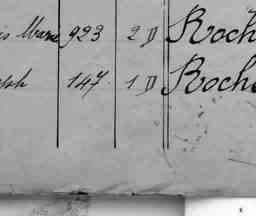 is Marie 923 2 D Roch
eph 147 1 D Roche